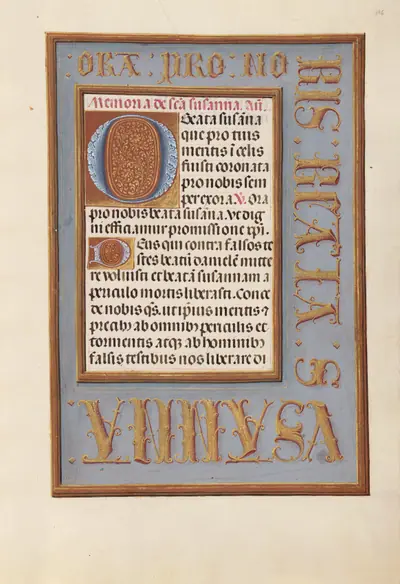 : ORA : PRO : NO
BIS : BEATA : S
VSANNA :
Memoria de scã susanna. Añ.
O Beata susãna
que pro tuis
meritis ĩ celis
fuisti coronata
pro nobis sem
per exora. V. Ora
pro nobis beata susãna. Vt dig
ni efficiamur promissione xp̃i.
Deus qui contra falsos te
stes beatũ danielẽ mitte
re voluisti et beatã susannam a
periculo mortis liberasti. Conce
de nobis qs. ut ipius meritis ⁊
precib; ab omnib; periculis et
tormentis atq; ab hominib;
falsis testibus nos liberare di